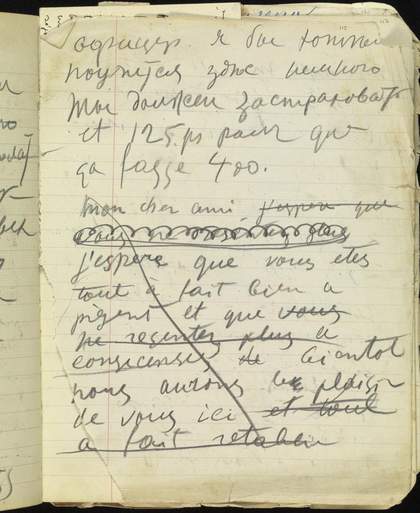 офицер я бы хотел
поучиться здес немного
Мы должен застраховать
et 125 ps pour que
ça fasse 400.
Mon cher ami, j'espere que
vous ne
j'espere que vous etes
tout a fait bien a
présent et que vous
ne resentez plus a
consecenses de bientot
nous aurons le plaisir
de vous ici et tout
a fait retablir